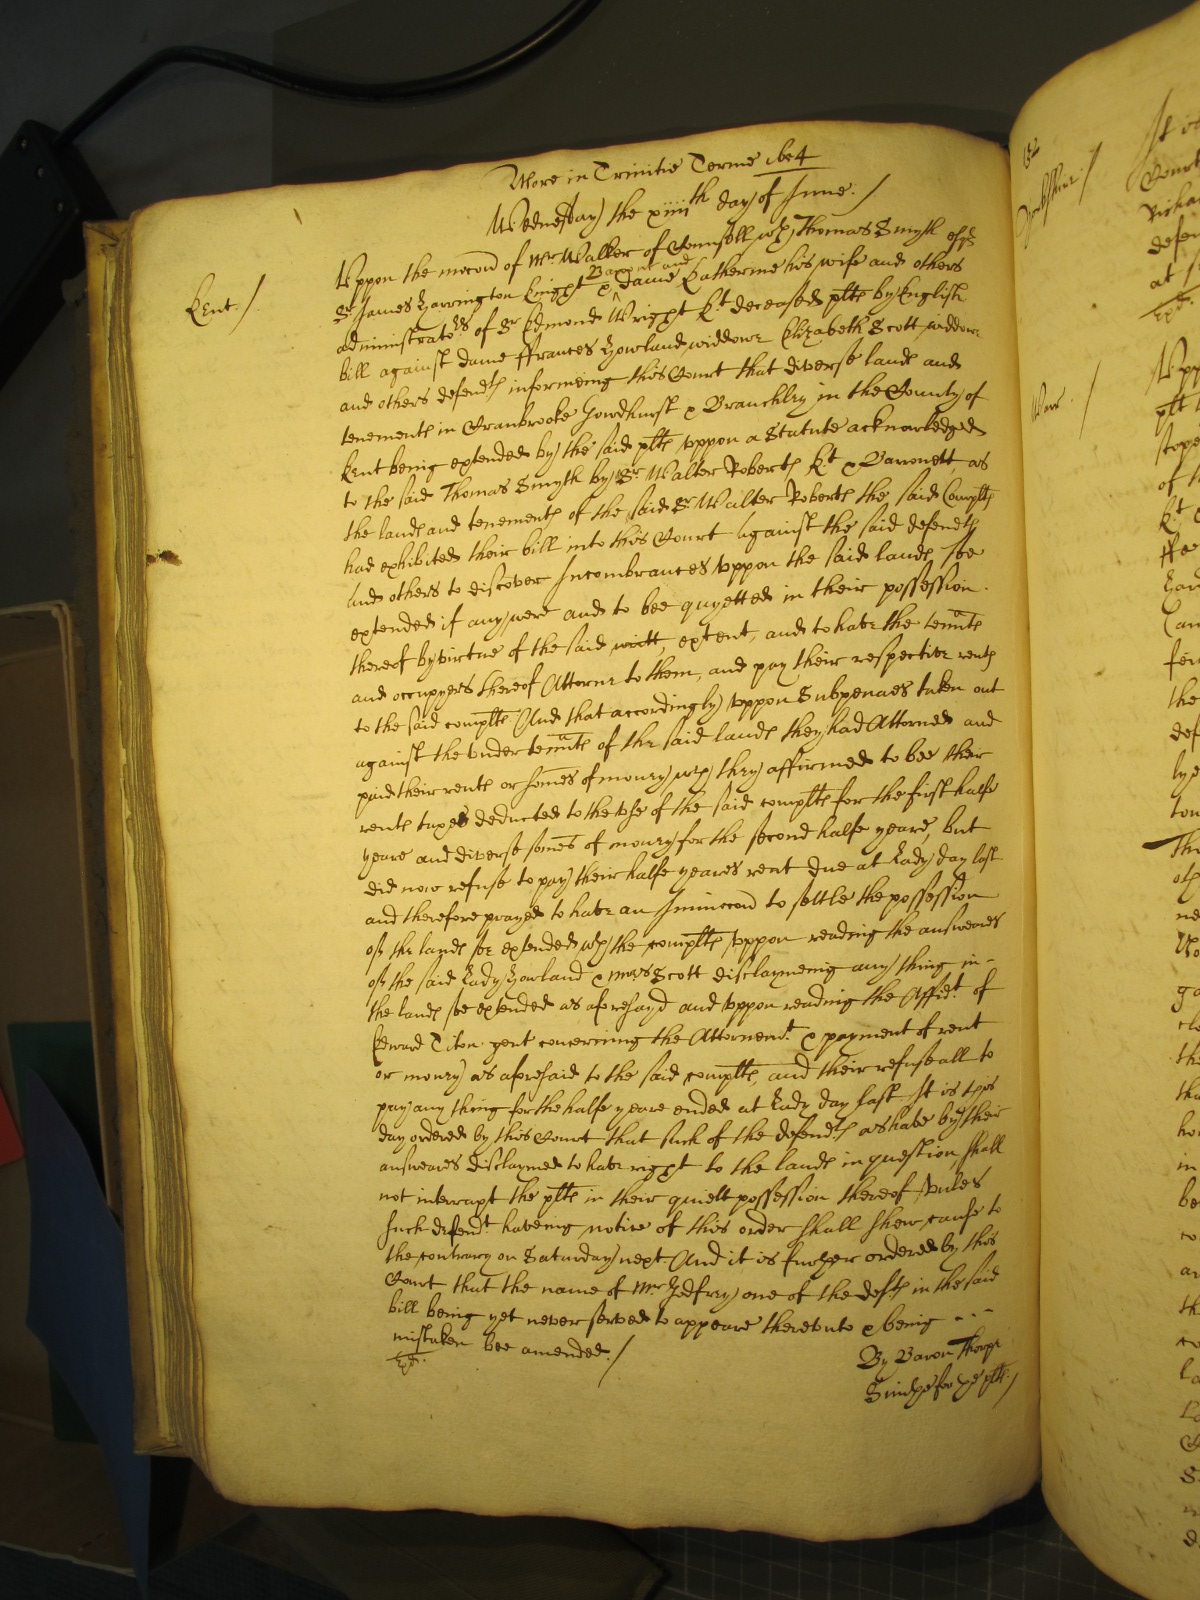 More in Trinitie Terme 1654
Wednesday the xiiiith day of June./
Kent./
Uppon the mocond of Mr Walker of Counsell wth Thomas Smyth esqr
Sr James Harrington Knight Baronet and & dame Katherine his wife and others
administrators of Sr Edmond Wright Kt deceased plts by English
bill against dame ffrances Howland widdowe Elizabeth Scott widdowe
and others defendts informeing this Court that diverse lands and
tenements in Cranbrooke Gowdhurst & Branchley in the County of
Kent being extended by the said plts uppon a Statute acknowledged
to the said Thomas Smyth by Sr Walter Roberts Kt & Barronett, as
the lands and tenements of the said Sr Walter Roberts the said Complts
had exhibited their bill into this Court against the said defendts
and others to discover Incombrances uppon the said lands soe
extended if any were and to bee quyetted in their possession
thereof by virtue of the said writt, extent, and to have the tennts
and occupyers thereof Attorne to them, and pay their respective rents
to the said complts And that accordingly uppon Subpenaes taken out
against the under tennts of the said lands they had Attorned and
paid their rents or somes of money wch they affirmed to bee their
rents taxes deducted to the use of the said complts for the first halfe
yeare and diverse somes of money for the second halfe yeare, but
did now refuse to pay their halfe yeares rent due at Lady day last
and therefore prayed to have an Iniunccond to settle the possession
of the lands soe extended wth the complts, uppon reading the answeares
of the said Lady Howland & mrs Scott disclaymeing any thing in
the lands soe extended as aforesayd and uppon reading the Affidt of
Edward Titon gent concerning the Attornemt & payment of rent
or money as aforesaid to the said complts, and their refuseall to
pay any thing for the halfe yeare ended at Lady day last It is this
day ordered by this Court that such of the defendts as have by their
answeares disclaymed to have right to the lands in question, shall
not interrupt the plts in their quiett possession thereof, unles
such defendt haveing notice of this order shall shew cause to
the contrary on Saturday next. And it is further ordered by this
Court that the name of Mr Jedfrey one of the defts in the said
bill being yet never served to appeare thereunto & being
mistaken bee amended./
By Baron Thorpe
for ye plts./